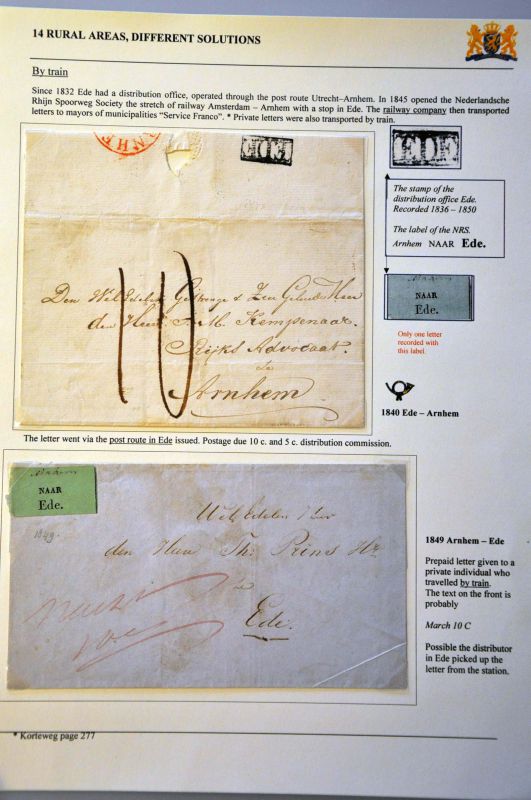 14 RURAL AREAS, DIFFERENT SOLUTIONS
By train
Since 1832 Ede had a distribution office, operated through the post route Utrecht–Arnhem. In 1845 opened the Nederlandsche
Rhijn Spoorweg Society the stretch of railway Amsterdam – Arnhem with a stop in Ede. The railway company then transported
letters to mayors of municipalities "Service Franco". * Private letters were also transported by train.
EDE
EDE
The stamp of the
distribution office Ede.
Recorded 1836 – 1850
The label of the NRS.
Arnhem NAAR Ede.
Arnhem
NAAR
Ede.
Only one letter
recorded with
this label.
Den Wel Edelen Gestrenge & Zeer Geleerde Heer
den Heer Kempenaar
Rijks Advocaat.
te
Arnhem
10
1840 Ede – Arnhem
The letter went via the post route in Ede issued. Postage due 10 c. and 5 c. distribution commission.
Arnhem
NAAR
Ede.
1849.
Wel Edelen Heer
den Heer Th. Prins Hz
Ede.
1849 Arnhem – Ede
Prepaid letter given to a
private individual who
travelled by train.
The text on the front is
probably
March 10 C
Possible the distributor
in Ede picked up the
letter from the station.
* Korteweg page 277